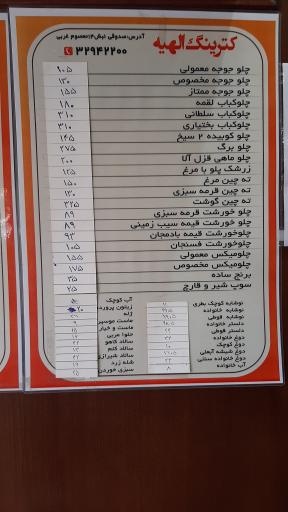 کترینگ الهیه
آدرس: صدوقی نبش ۱۴ معصوم غربی
۳۲۹۴۲۲۰۰
چلو جوجه معمولی ۹۰۵
چلو جوجه مخصوص ۱۳۰
چلو جوجه ممتاز ۱۵۵
چلوکباب لقمه ۱۸۰
چلوکباب سلطانی ۳۱۰
چلوکباب بختیاری ۳۱۰
چلو کوبیده ۲ سیخ ۱۴۵
چلو برگ ۲۷۵
چلو ماهی قزل آلا ۲۰۰
زرشک پلو با مرغ ۱۲۵
ته چین مرغ ۱۵۰
ته چین قرمه سبزی ۱۳۰
ته چین گوشت ۳۲۵
چلو خورشت قرمه سبزی ۸۹
چلو خورشت قیمه سیب زمینی ۸۹
چلوخورشت قیمه بادمجان ۹۳
چلوخورشت فسنجان ۱۰۵
چلومیکس معمولی ۱۵۵
چلومیکس مخصوص ۱۷۵
برنج ساده ۳۵
سوپ شیر و قارچ ۲۵
نوشابه کوچک بطری
نوشابه خانواده
نوشابه قوطی
دلستر خانواده
دلستر قوطی
دوغ خانواده
دوغ کوچک
دوغ شیشه آبعلی
دوغ خانواده سنتی
آب خانواده ۸
آب کوچک
زیتون پرورده ۲۰
ژله
ماست موسیر
ماست و خیار
حلوا عربی
سالاد کاهو
سالاد کلم
سالاد شیرازی
شله زرد
سبزی خوردن